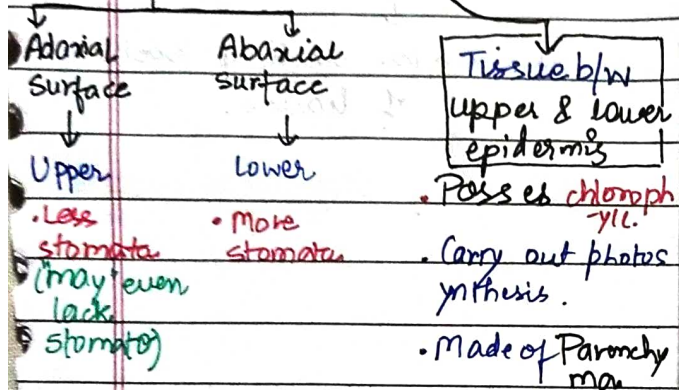 Adaxial
Surface
Upper
. Less
stomata
(may even
lack
stomata)
Abaxial
surface
Lower
• More
stomata
Tissue b/w
upper & lower
epidermis
. Posses chloroph
-yll.
. Carry out photos
ynthesis.
• Made of Parenchy
ma